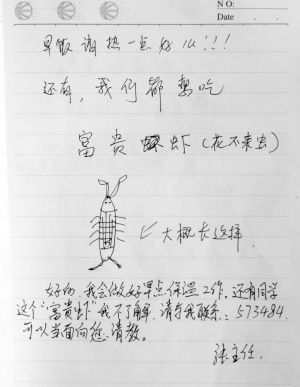 NO:
Date
早饭谢热一点好么!!!
还有,我们都想吃
富贵虾(花不来虫)
← 大概长这样.
好的,我会做好早点保温工作。还有同学
这个“富贵虾”我不了解,请与我联系:573484.
可以当面向您请教。
张主任.